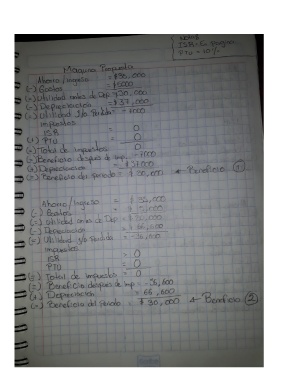 Notas
ISR=
PTU = 10%
Maquina Propuesta
Ahorro / ingreso = $36,000
(-) Gastos = $6000
(=) Utilidad antes de Dep = $30,000
(-) Depreciacion = $37,000
(=) Utilidad y/o Perdida = -7000
impuestos
ISR = 0
(+) PTU = 0
(=) Total de impuestos 0
(=) Beneficio despues de imp. = -7000
(+) Depreciacion = $37000
(=) Beneficio del periodo = $30,000 ← Beneficio ①
Ahorro / Ingreso = $36,000
(-) Gastos =
(=) Utilidad antes de Dep =
(-) Depreciacion = $66,600
(=) Utilidad y/o Perdida = -36,600
impuestos
ISR = 0
PTU = 0
(=) Total de impuestos = 0
(=) Beneficio despues de imp = -36,600
(+) Depreciacion = 66,600
(=) Beneficio del Periodo = $30,000 ← Beneficio ②